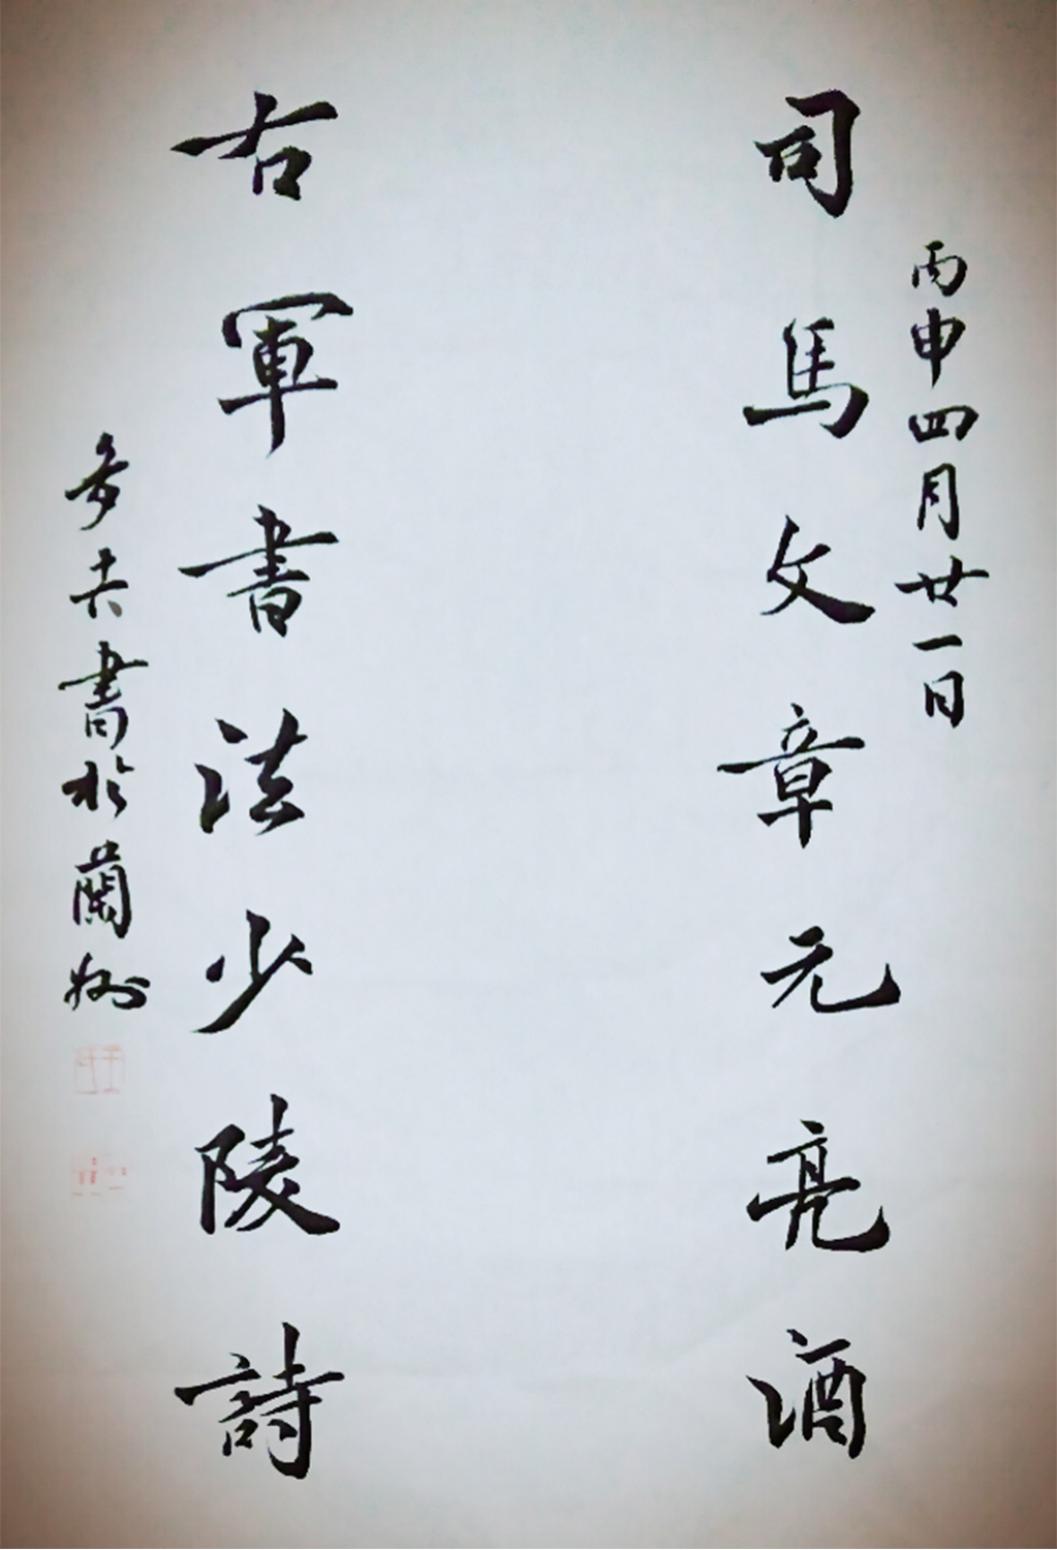 丙申四月廿一日
司馬文章元亮酒
右軍書法少陵詩
書於蘭州